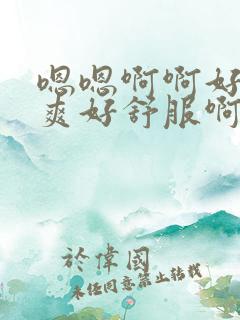 嗯嗯啊啊好
爽好舒服啊
於偉國
未经同意禁止转载